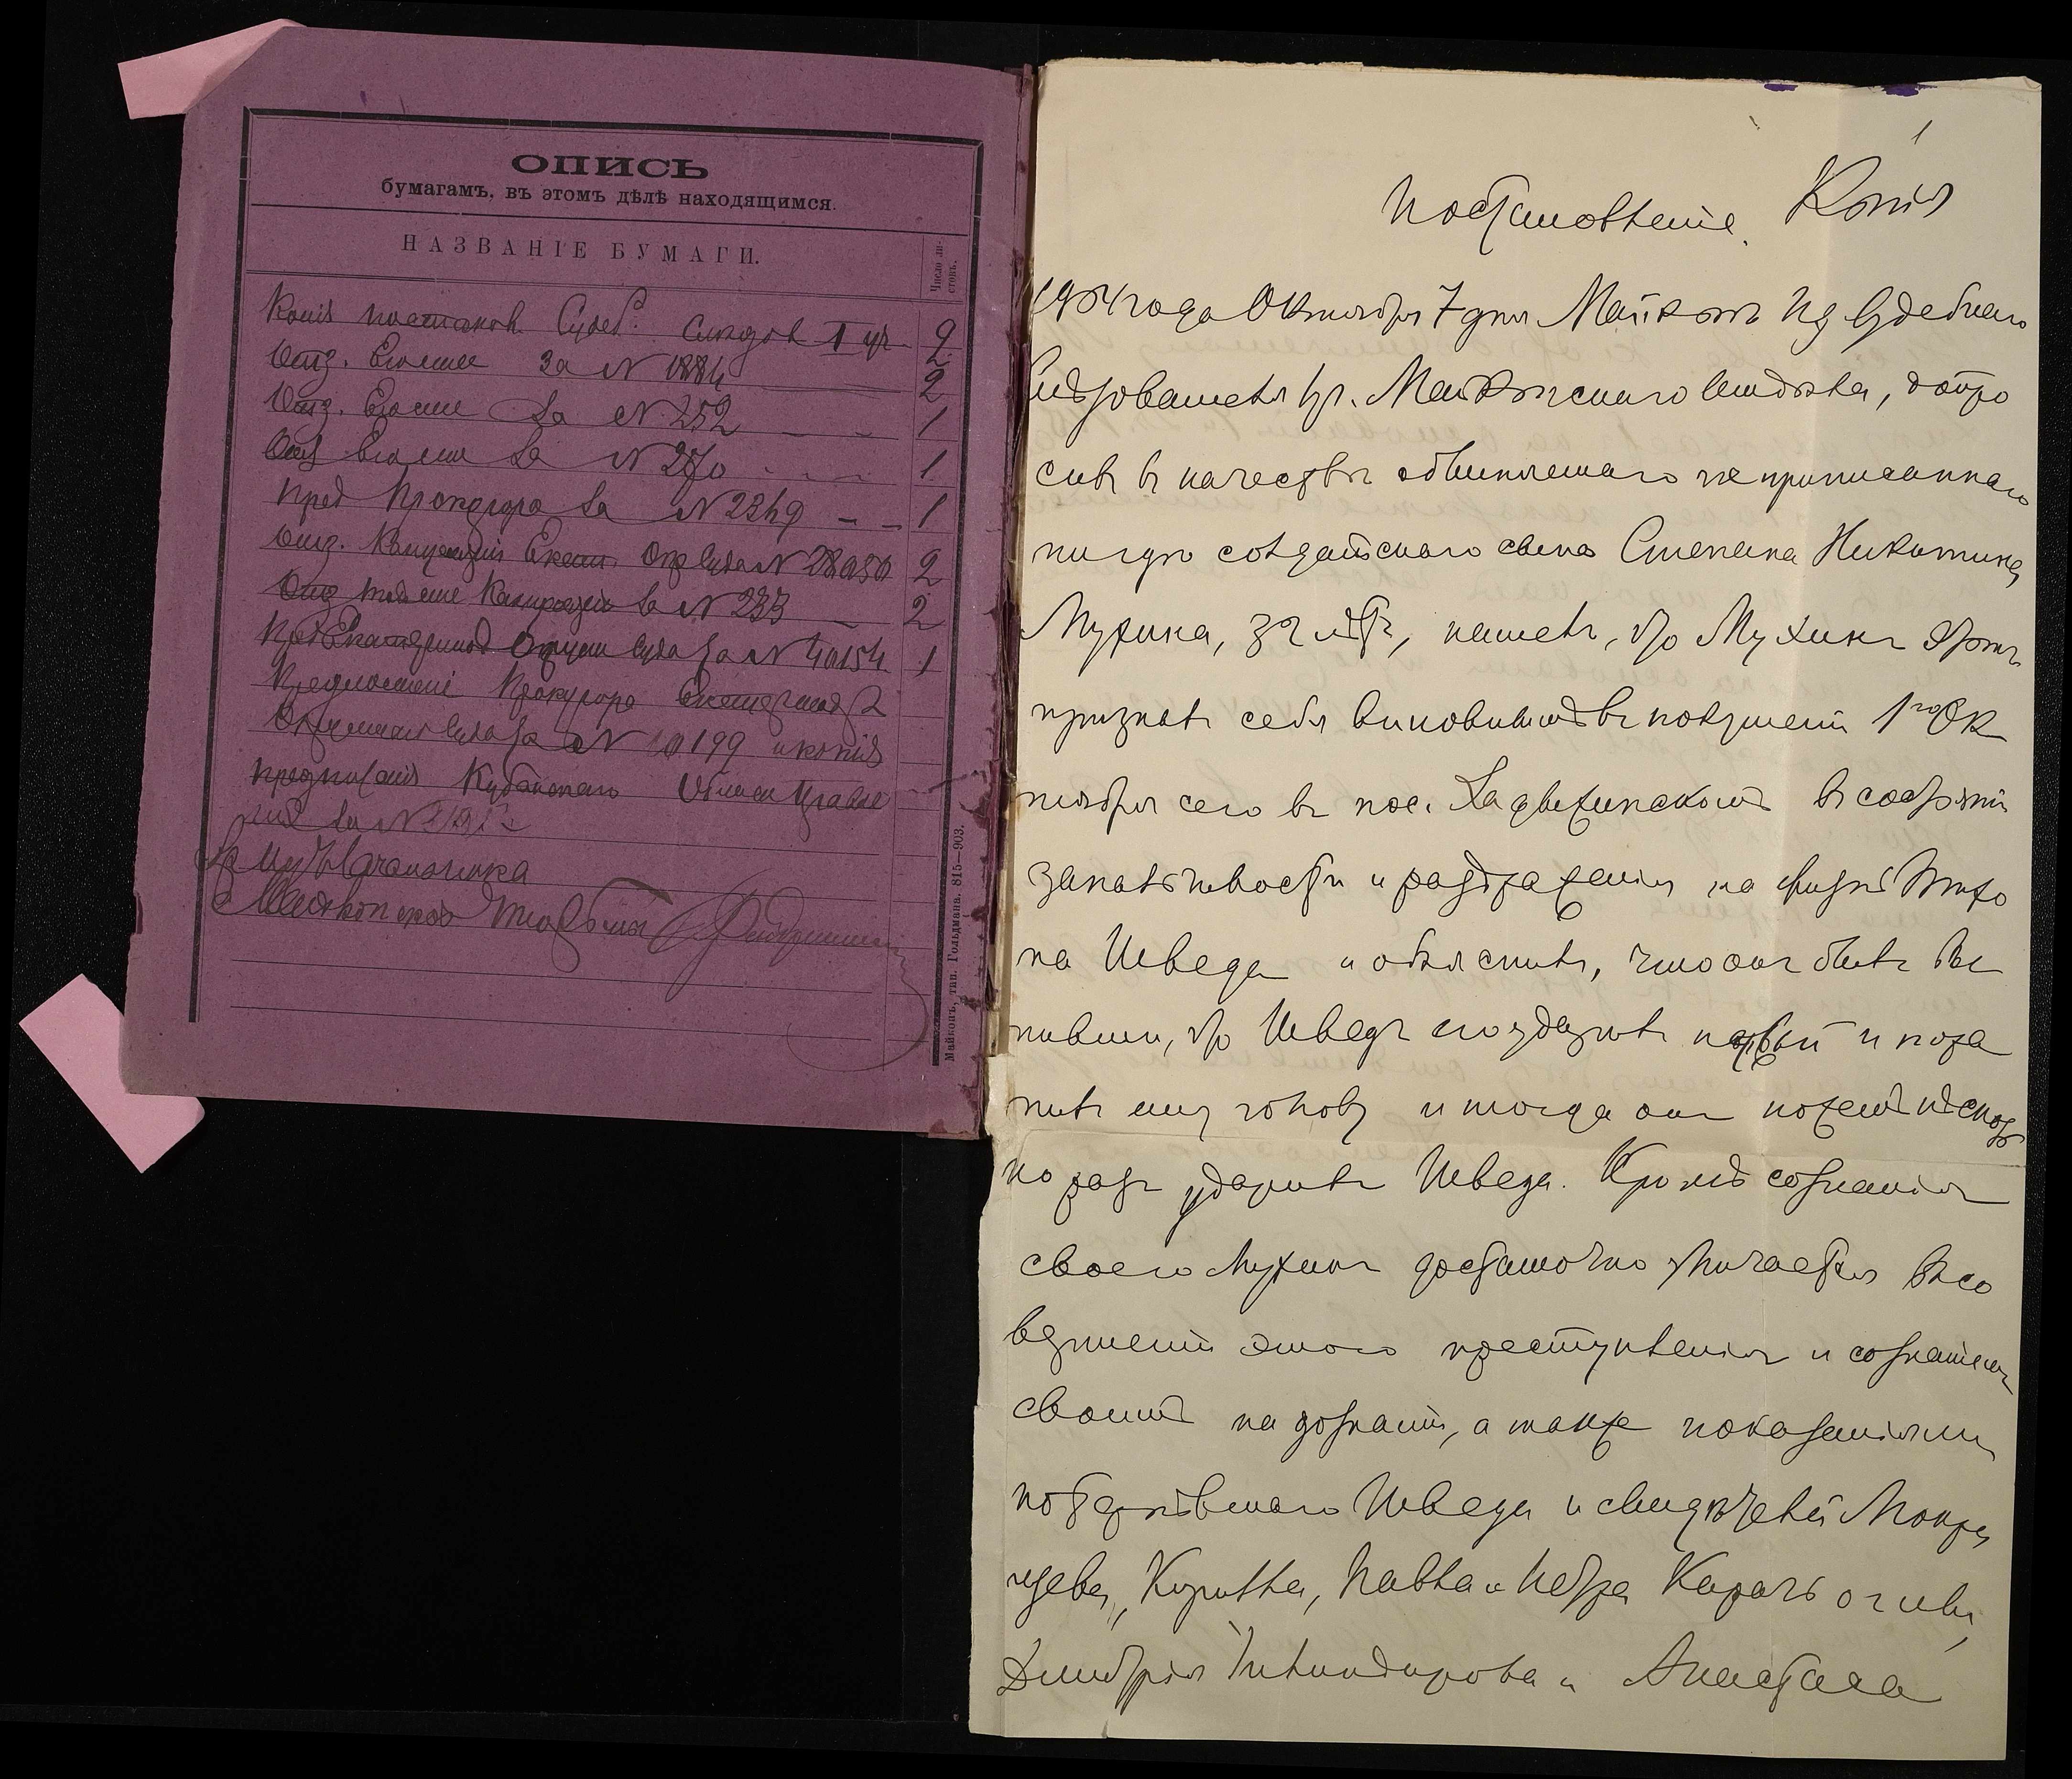 ОПИСЬ
бумагамъ, въ этомъ дѣлѣ находящимся.
НАЗВАНІЕ БУМАГИ.
Число листовъ.
Копія постанов. Судеб. Слѣдов I уч. 2
Отз. Его же За № 1884 2
Отз. Его же За № 252 1
Отз Его же За № 270 1
Пред Прокурора За № 2349 1
Отз. Канцеляріи Екат. Окр Суда № 28050 2
Отз той же Канцеляріи За № 233 2
Пред Екатеринод Окружн Суда За № 40154 1
Предложеніе Прокурора Екатеринод
Окружнаго Суда За № 10199 и копія
предписанія Кубанскаго Областн Правле
нія За №
Майкопскаго
Майкопъ, тип. Гольдмана. 815—903.
1
Постановленіе. Копія
1904 года Октября 7 дня Майкопъ И д Судебнаго
Слѣдователя Майкопскаго отдѣла, допро
сивъ въ качествѣ обвиняемаго неприписаннаго
нигдѣ солдатскаго сына Степана Никитина
Мухина, 32 лѣтъ, нашелъ, что Мухинъ этотъ
призналъ себя виновнымъ въ покушеніи 1го Ок
тября сего въ пос. Хадыженскомъ въ состояніи
запальчивости и раздраженія на жизнь Тихо
на Шведа и объяснилъ, что онъ былъ вы
пивши, что Шведъ его ударилъ первый и пора
нилъ ему голову и тогда онъ ножемъ нѣсколь
ко разъ ударилъ Шведа. Кромѣ сознанія
своего Мухинъ достаточно уличается въ со
вершеніи этого преступленія и сознаніемъ
своимъ на дознаніи, а также показаніями
потерпѣвшаго Шведа и свидѣтелей Мокро
Кирилла, Павла и Петра
Дмитрія и Анастаса